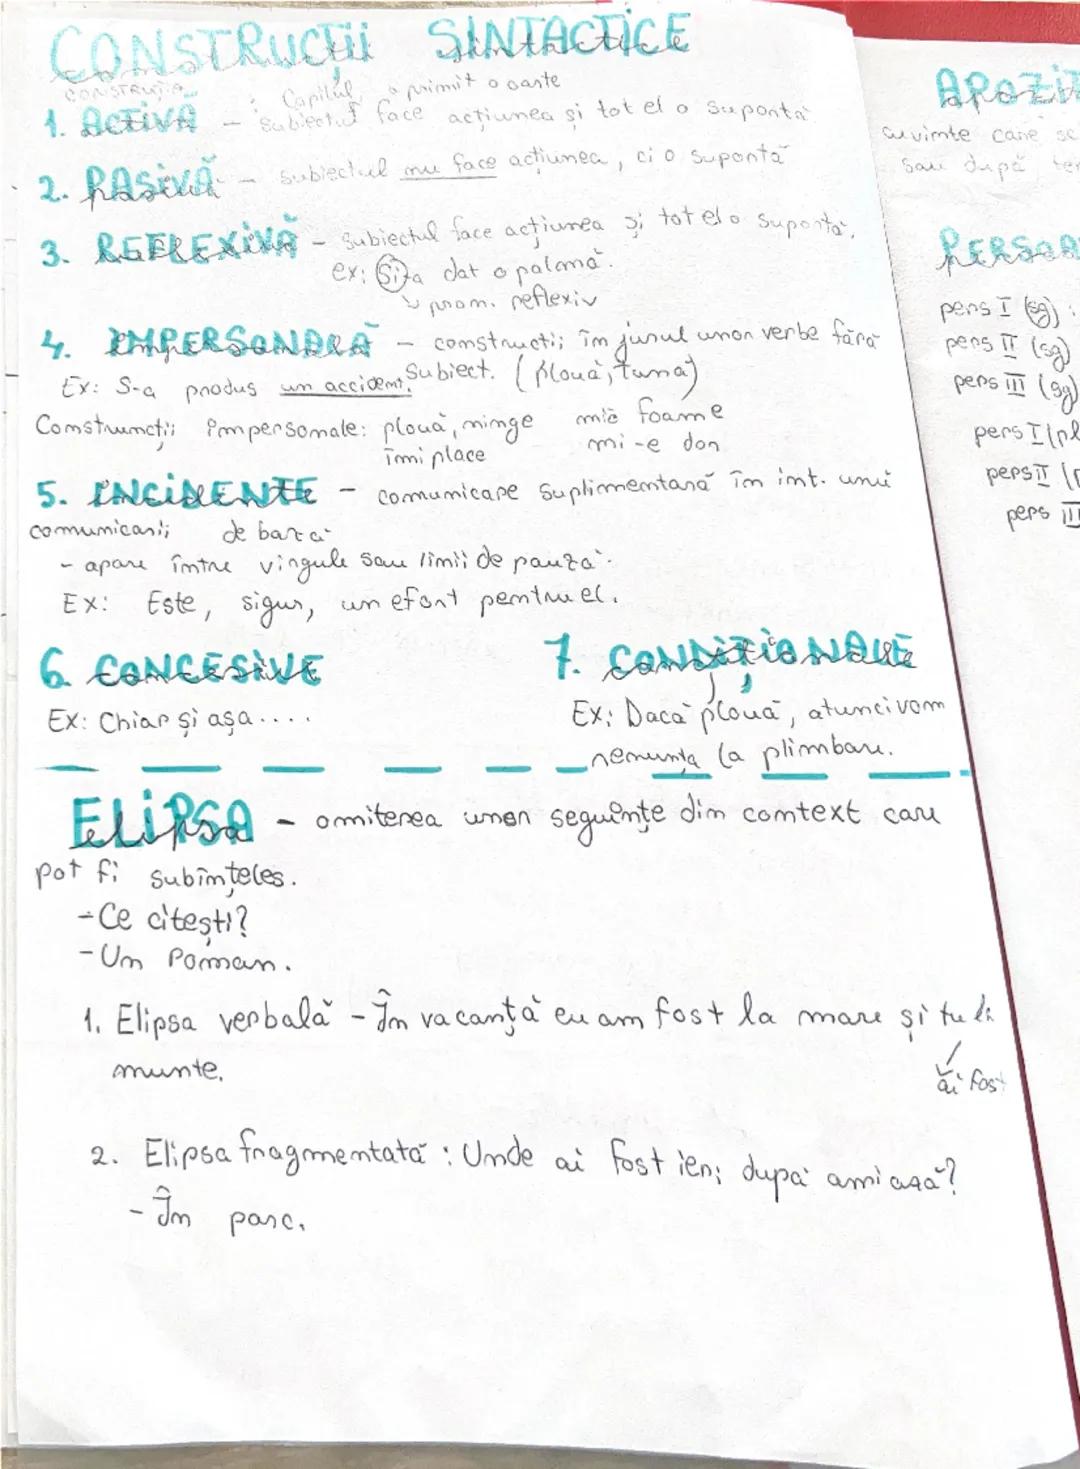 CONSTRUCȚII SINTACTICE
CONSTRUCȚIA
: Copilul a primit o carte
1. ACTIVĂ - subiectul face acțiunea și tot el o suportă
2. PASIVĂ - subiectul nu face acțiunea, ci o suportă
3. REFLEXIVĂ - subiectul face acțiunea și tot el o suportă.
ex: Și-a dat o palmă.
pron. reflexiv
4. IMPERSONALĂ - construcții în jurul unor verbe fără
subiect. (plouă, tună)
Ex: S-a produs un accident.
Construncții impersonale: plouă, ninge mi-e foame
îmi place mi-e dor
5. INCIDENTE - comunicare suplimentară în int. unei
comunicări de bază
- apare între virgule sau linii de pauză.
Ex: Este, sigur, un efort pentru el.
6. CONCESIVE 7. CONDIȚIONALE
Ex: Chiar și așa.... Ex: Dacă plouă, atunci vom
renunța la plimbare.
ELIPSA - omiterea unor seguințe din context care
pot fi subînțeles.
- Ce citești?
- Un Roman.
1. Elipsa verbală - În vacanță eu am fost la mare și tu la
munte.
ai fost
2. Elipsa fragmentată : Unde ai fost ieri după amiază?
- În parc.
APOZIȚ
cuvinte care se
sau după ter
PERSOA
pers I (sg) :
pers II (sg)
pers III (sg)
pers I (pl
pers II (p
pers III